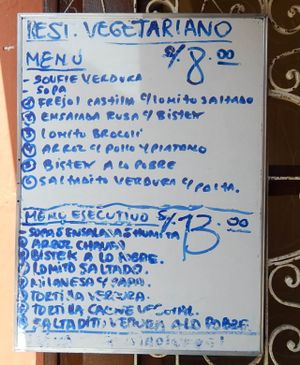 REST. VEGETARIANO
MENU S/. 8.00
- SOUFLE VERDURA
- SOPA
① FREJOL CASTILLA C/LOMITO SALTADO
② ENSALADA RUSA C/BISTEK
③ LOMITO BROCOLI
④ ARROZ C/POLLO Y PLATANO
⑤ BISTEK A LO POBRE
⑥ SALTADITO VERDURA C/POLTA.
MENU ESECUTIVO S/. 13.00
- SOPA Ó ENSALADA Ó HUMITA
ARROZ CHAUFA
BISTEK A LO POBRE.
LOMITO SALTADO.
MILANESA Y PAPA.
TORTILLA VERDURA.
TORTILLA CARNE VEGETAL.
SALTADITO VERDURA A LO POBRE.